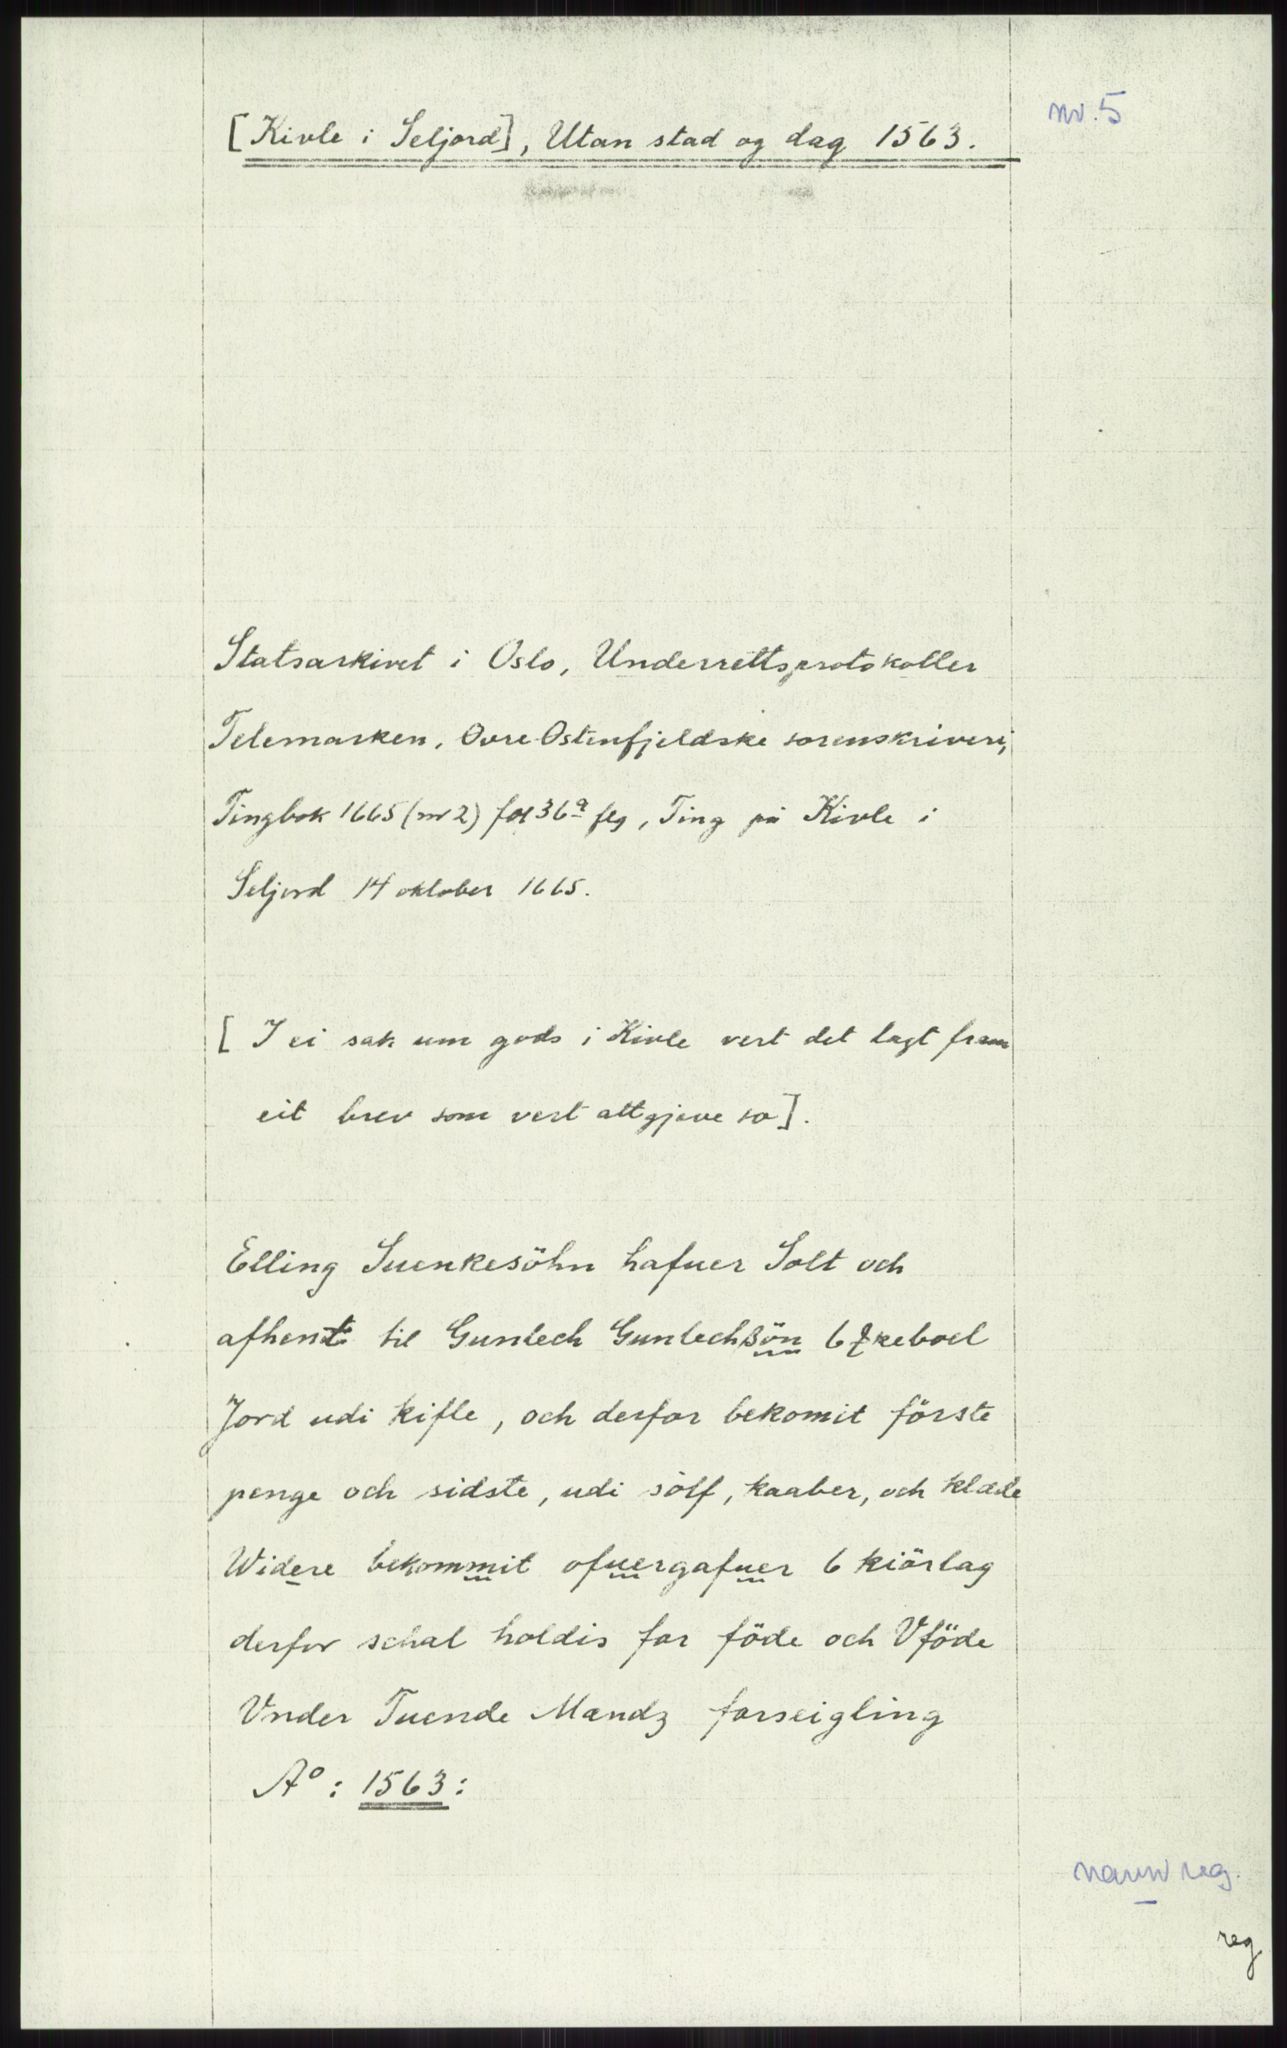 nr. 5
[Kivle i Seljord], Utan stad og dag 1563.
Statsarkivet i Oslo, Underrettsprotokoller
Telemarken, Øvre Ostenfjeldske sorenskriveri,
Tingbok 1665 (nr 2) fol 36a flg, Ting på Kivle i
Seljord 14 oktober 1665.
[I ei sak um gods i Kivle vert det lagt fram
eit brev som vert attgjeve so].
Elling Suenkesöhn hafuer Solt och
afhent til Gunlech Gunlechsön 6 keboel
Jord udi kifle, och derfor bekomit förste
penge och sidste, udi sölf, kaaber, och klæde
Widere bekommit ofuergafuer 6 kiörlag
derfor schal holdis for föde och Vföde
Vnder Tuende Mændz forseigling
Ao: 1563:
namnreg.
reg